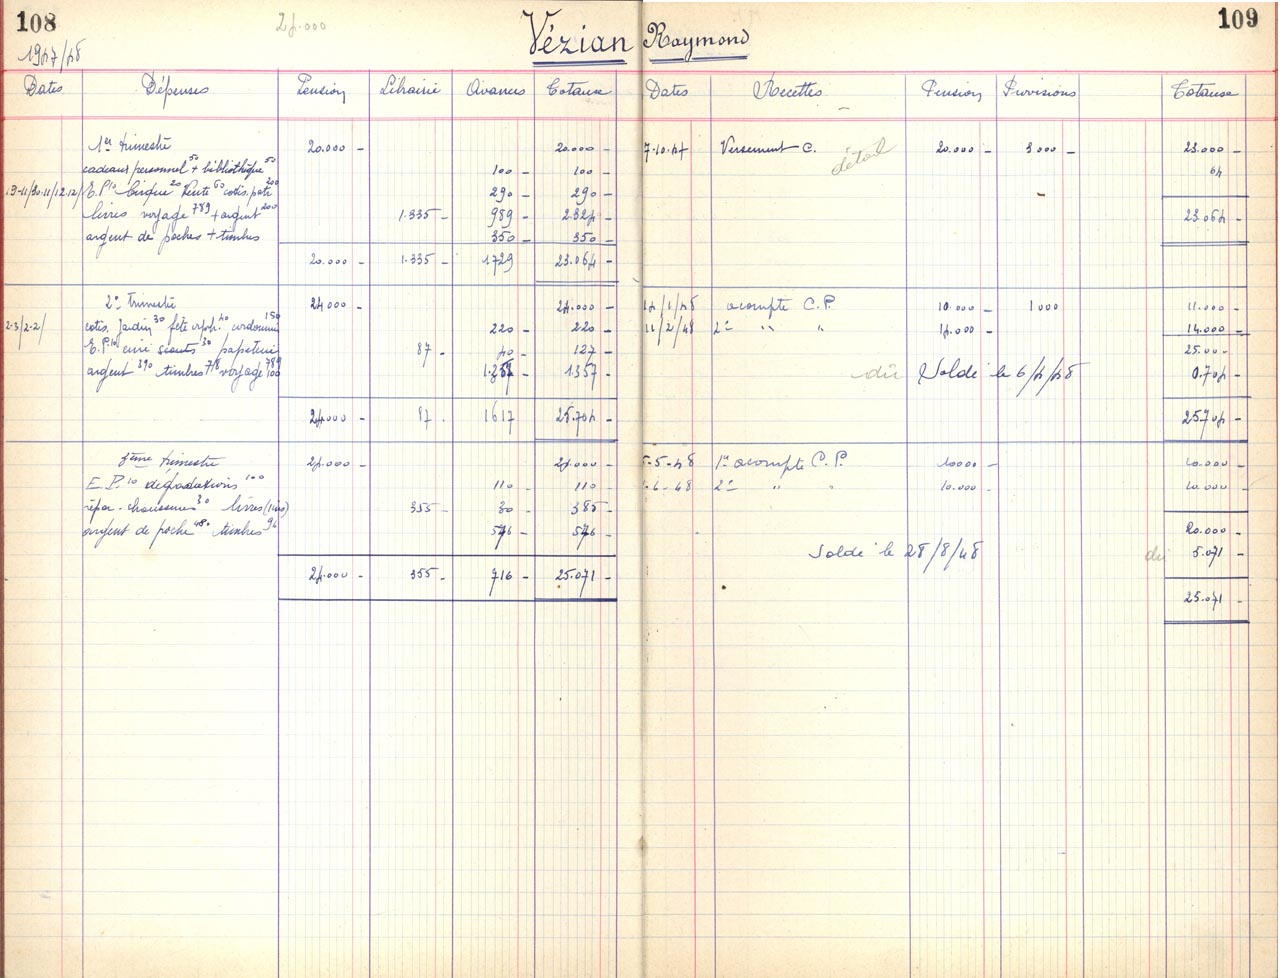 108
24.000
Vézian Raymond
109
1947/48
Dates Dépenses Pension Librairie Avances Totaux Dates Recettes Pension Provisions Totaux
1er trimestre 20.000 - 20.000 - 7-10-47 Versement C. détail 20.000 - 3000 - 23.000 -
cadeau personnel 50 + bibliothèque 50 100 - 100 - 64
E.P 10 cirque 20 Vente 60 cotis. patr 200 290 - 290 -
livres voyage 789 + argent 200 1.335 - 989 - 2.324 - 23.064 -
argent de poches + timbres 350 - 350 -
20.000 - 1.335 - 1.729 23.064 -
2e trimestre 24.000 - 24.000 - 14/1/48 acompte C.P. 10.000 - 1000 11.000 -
2-3/2-2/ cotis. Jardin 30 fête 40 cordonnier 150 220 - 220 - 11/2/48 2e " " 14.000 - 14.000 -
E.P. 10 scouts 30 papeterie 87 - 40 - 127 - 25.000 -
argent 390 timbres 78 voyage 789 100 1.357 - 1.357 - dû Solde le 6/4/48 0.704 -
24.000 - 87 - 1617 25.704 - 25.704 -
3ème trimestre 24.000 - 24.000 - 5-5-48 1er acompte C.P. 10000 - 10.000 -
E.P. 10 dégradations 100 110 - 110 - 6-48 2e " " 10.000 - 10.000 -
répar. chaussures 30 livres 355 - 30 - 385 -
argent de poche 480 timbres 96 576 - 576 - 20.000 -
Solde le 28/8/48 dû 5.071 -
24.000 - 355 - 716 - 25.071 -
25.071 -